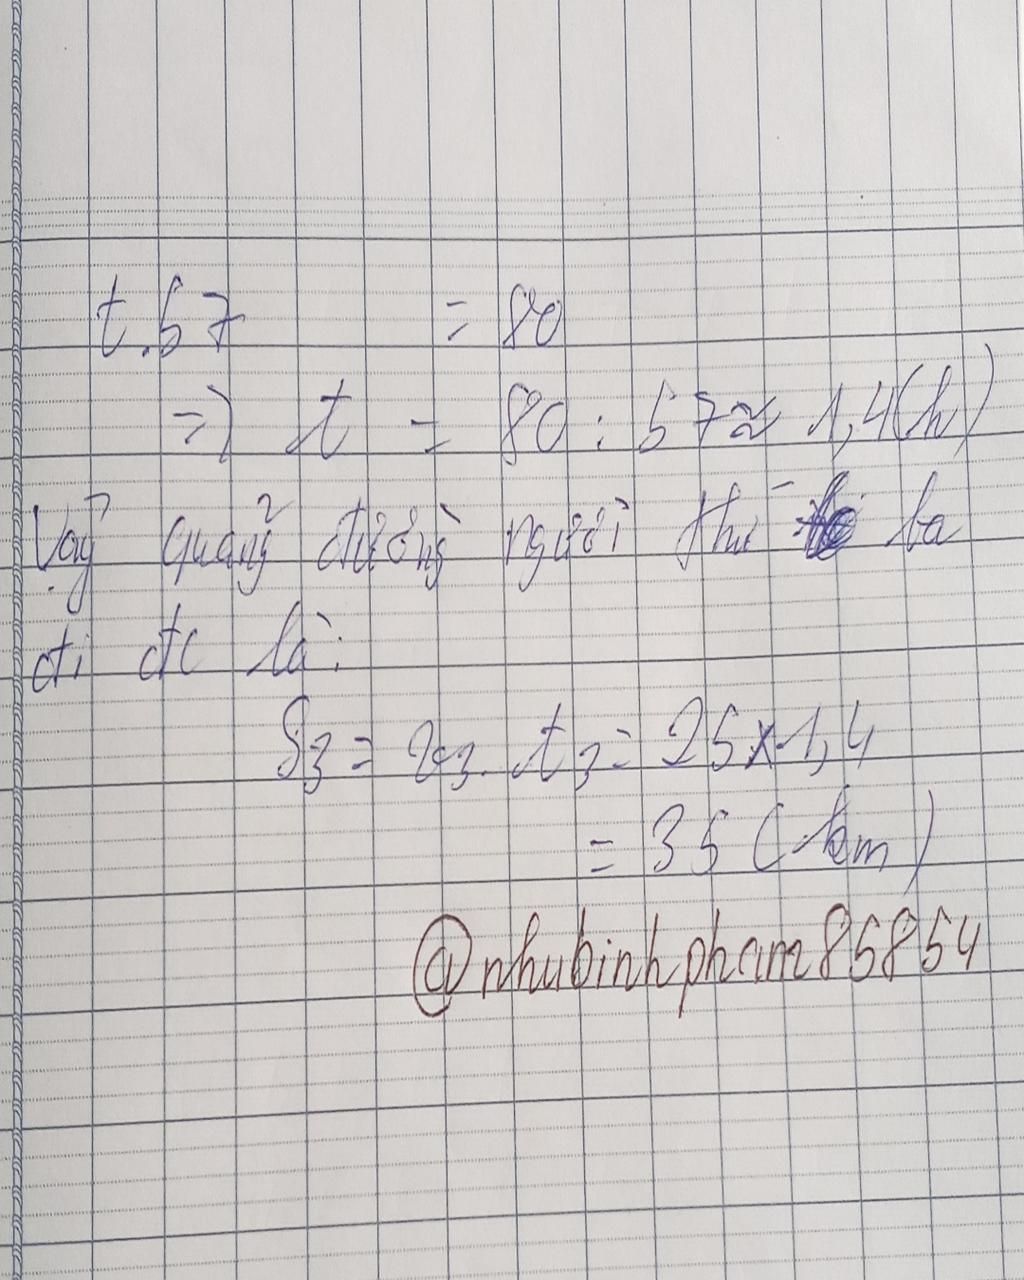 t.57 = 80
=> t = 80 : 57 ≈ 1,4(h)
Vậy quảng đường người thứ ba
đi đc là:
S3 = v3. t3 = 25x1,4
= 35 (km)
@nhubinhpham85854